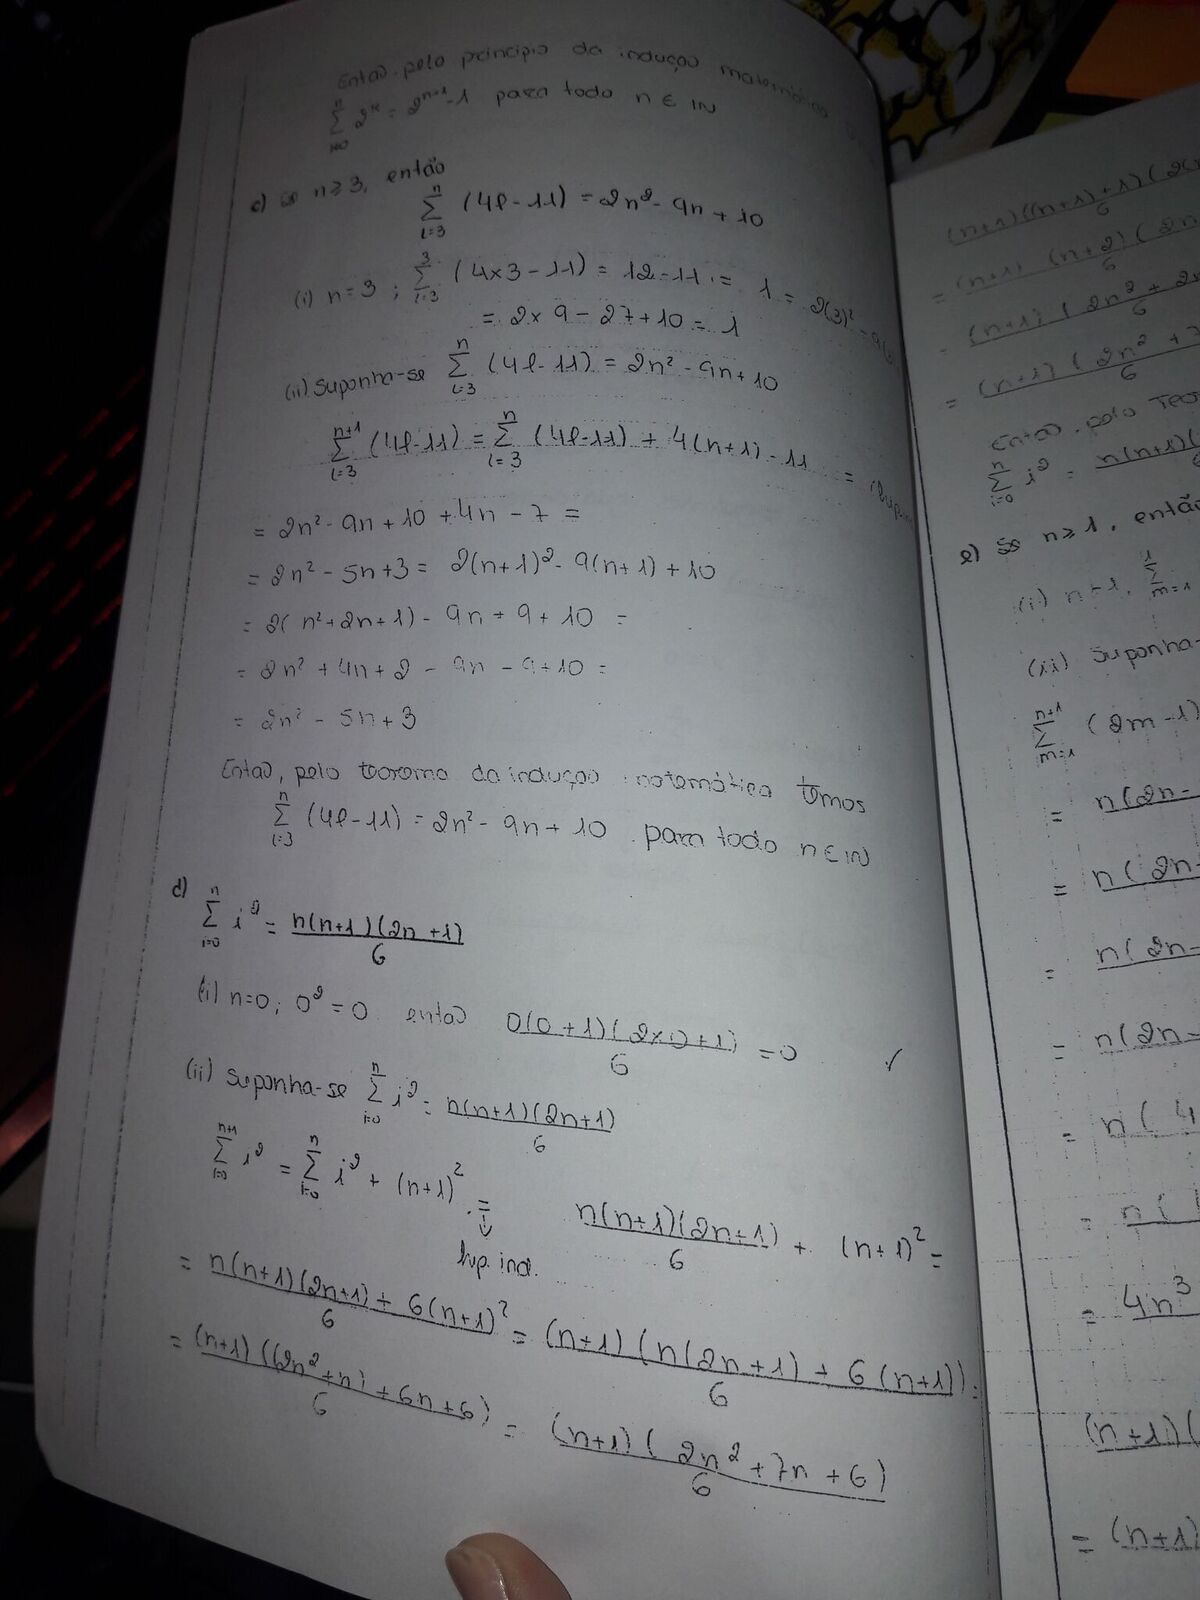 Então, pelo princípio da indução matemática
∑_{i=0}^{n} 2^k = 2^{n+1} - 1 para todo n ∈ IN
c) se n ≥ 3, então
∑_{l=3}^{n} (4l-11) = 2n² - 9n + 10
(i) n=3 ; ∑_{l=3}^{3} (4x3-11) = 12-11 = 1 = 2(3)² - 9(
= 2x9 - 27 + 10 = 1
(ii) Suponha-se ∑_{l=3}^{n} (4l-11) = 2n² - 9n + 10
∑_{l=3}^{n+1} (4l-11) = ∑_{l=3}^{n} (4l-11) + 4(n+1) - 11 =
= 2n² - 9n + 10 + 4n - 7 =
= 2n² - 5n + 3 = 2(n+1)² - 9(n+1) + 10
= 2(n² + 2n + 1) - 9n + 9 + 10 =
= 2n² + 4n + 2 - 9n - 9 + 10 =
= 2n² - 5n + 3
Então, pelo teorema da indução matemática temos
∑_{l=3}^{n} (4l-11) = 2n² - 9n + 10 para todo n ∈ IN
d) ∑_{i=0}^{n} i² = n(n+1)(2n+1)/6
(i) n=0; 0² = 0 então 0(0+1)(2x0+1)/6 = 0 ✓
(ii) Suponha-se ∑_{i=0}^{n} i² = n(n+1)(2n+1)/6
∑_{i=0}^{n+1} i² = ∑_{i=0}^{n} i² + (n+1)² = n(n+1)(2n+1)/6 + (n+1)² =
↓
hip. ind.
= n(n+1)(2n+1) + 6(n+1)²/6 = (n+1)(n(2n+1) + 6(n+1))/6 =
= (n+1)((2n²+n) + 6n + 6)/6 = (n+1)(2n² + 7n + 6)/6
(n+1)((n+1)+1)(2(
= (n+1)(n+2)(2n
= (n+1)(2n² + 2n
= (n+1)(2n² + 7
Então, pelo Teor
∑_{i=0}^{n} i² = n(n+1)(
e) se n ≥ 1, então
(i) n=1, ∑_{m=1}^{1}
(ii) Suponha-
∑_{m=1}^{n+1} (2m-1)
= n(2n-
= n(2n
= n(2n-
= n(2n-
= n(4
= n(
= 4n³
(n+1)(
= (n+1)